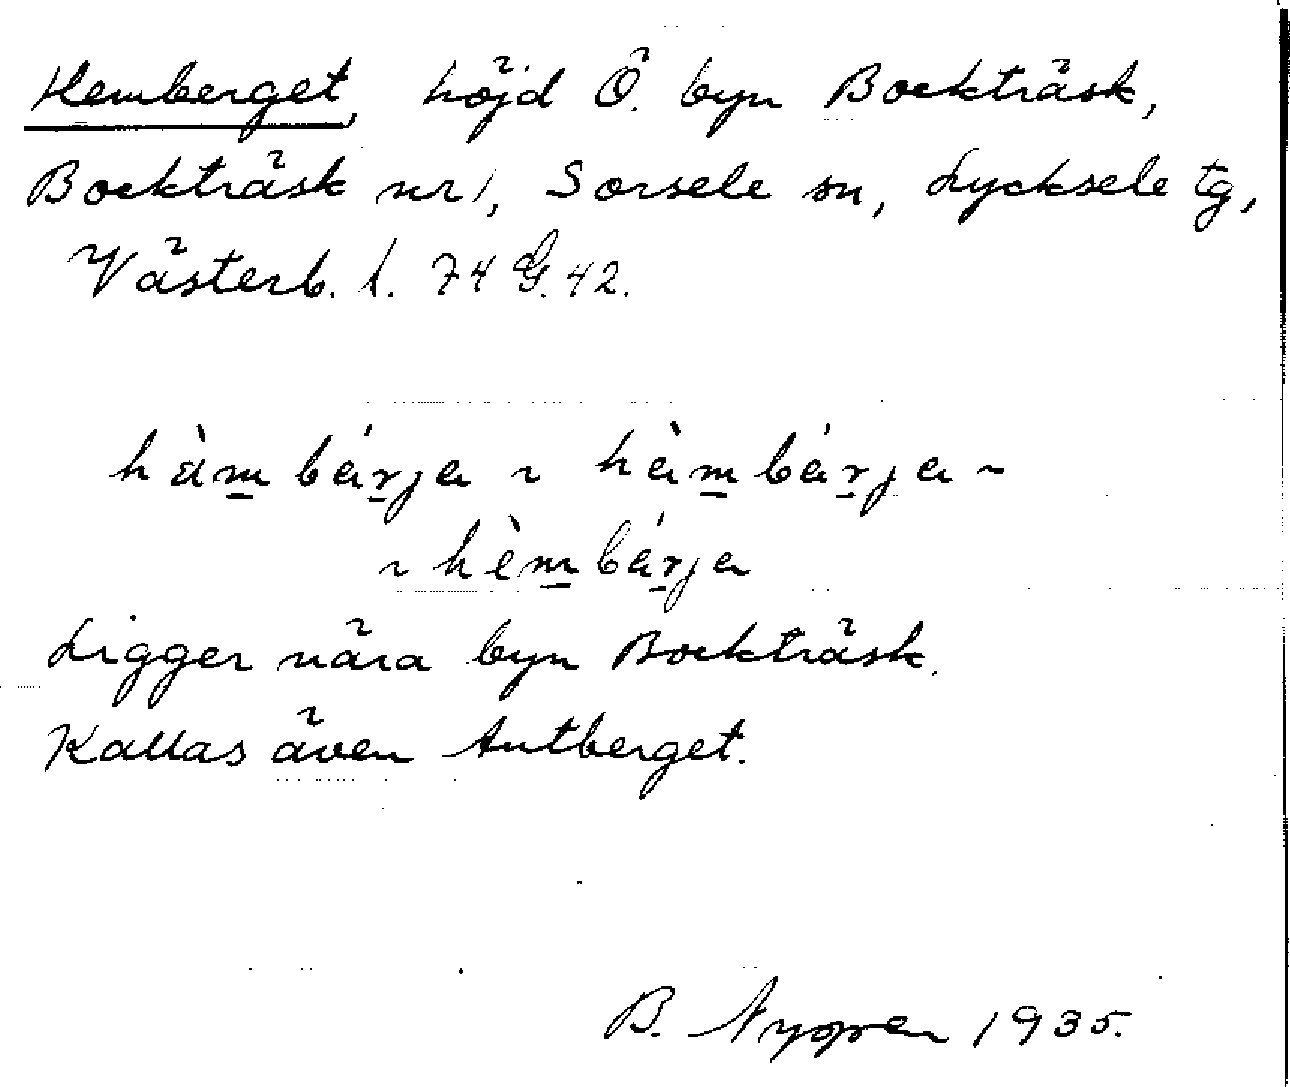 Hemberget, höjd Ö. byn Bockträsk,
Bockträsk nr 1, Sorsele sn, Lycksele tg,
Västerb. l. 74 G. 42.
hàm bárja ~ hàm bárja ~
~ hèm bárja
Ligger nära byn Bockträsk.
Kallas även Antberget.
B. Nygren 1935.